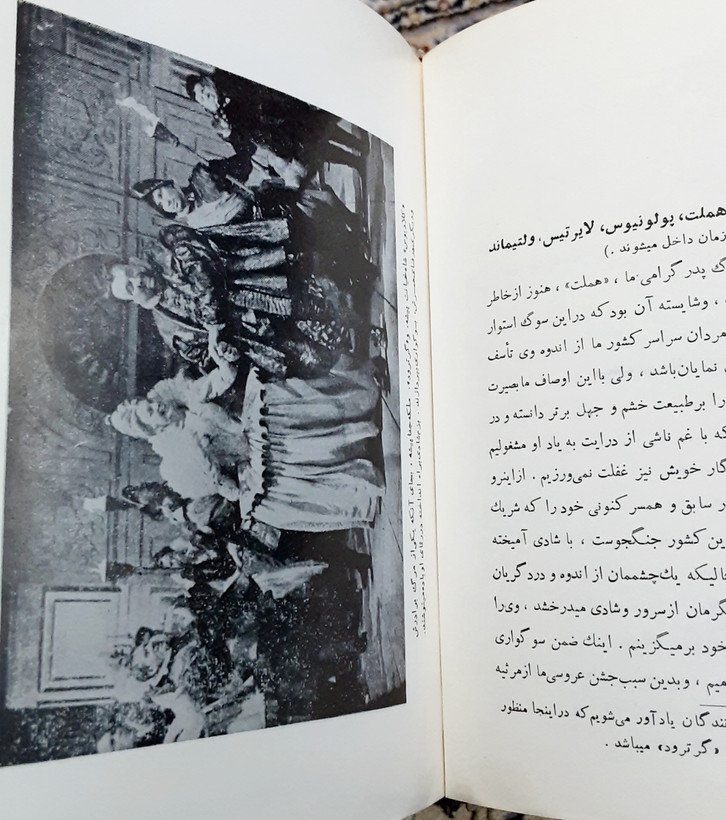 هملت، پولونیوس، لایرتیس، ولتیماند
زمان داخل میشوند .)
گ پدر گرامی ما ، «هملت» ، هنوز از خاطر
، وشایسته آن بود که دراین سوگ استوار
مردان سراسر کشور ما از اندوه وی تأسف
نمایان‌باشد ، ولی بااین اوصاف مابصیرت
را برطبیعت خشم و جهل برتر دانسته و در
که با غم ناشی از درایت به یاد او مشغولیم
گار خویش نیز غفلت نمی‌ورزیم . ازاینرو
ر سابق و همسر کنونی خود را که شریك
ین کشور جنگجوست ، با شادی آمیخته
الیکه یك‌چشممان از اندوه و درد گریان
گرمان ازسرور وشادی میدرخشد ، وی‌را
خود برمیگزینم . اینك ضمن سوگواری
میم ، وبدین سبب‌جشن عروسی‌ما ازمرثیه
نندگان یادآور می‌شویم‌که دراینجا منظور
«گرترود» میباشد .